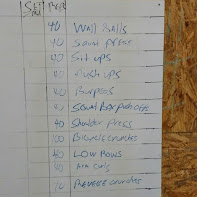 SET REPS
40 Wall Balls
40 Squat press
40 Sit ups
40 Push ups
40 Burpees
Squat Box push offs
40 Shoulder Press
100 Bicycle crunches
40 LOW ROWS
40 Arm Curls
Reverse crunches